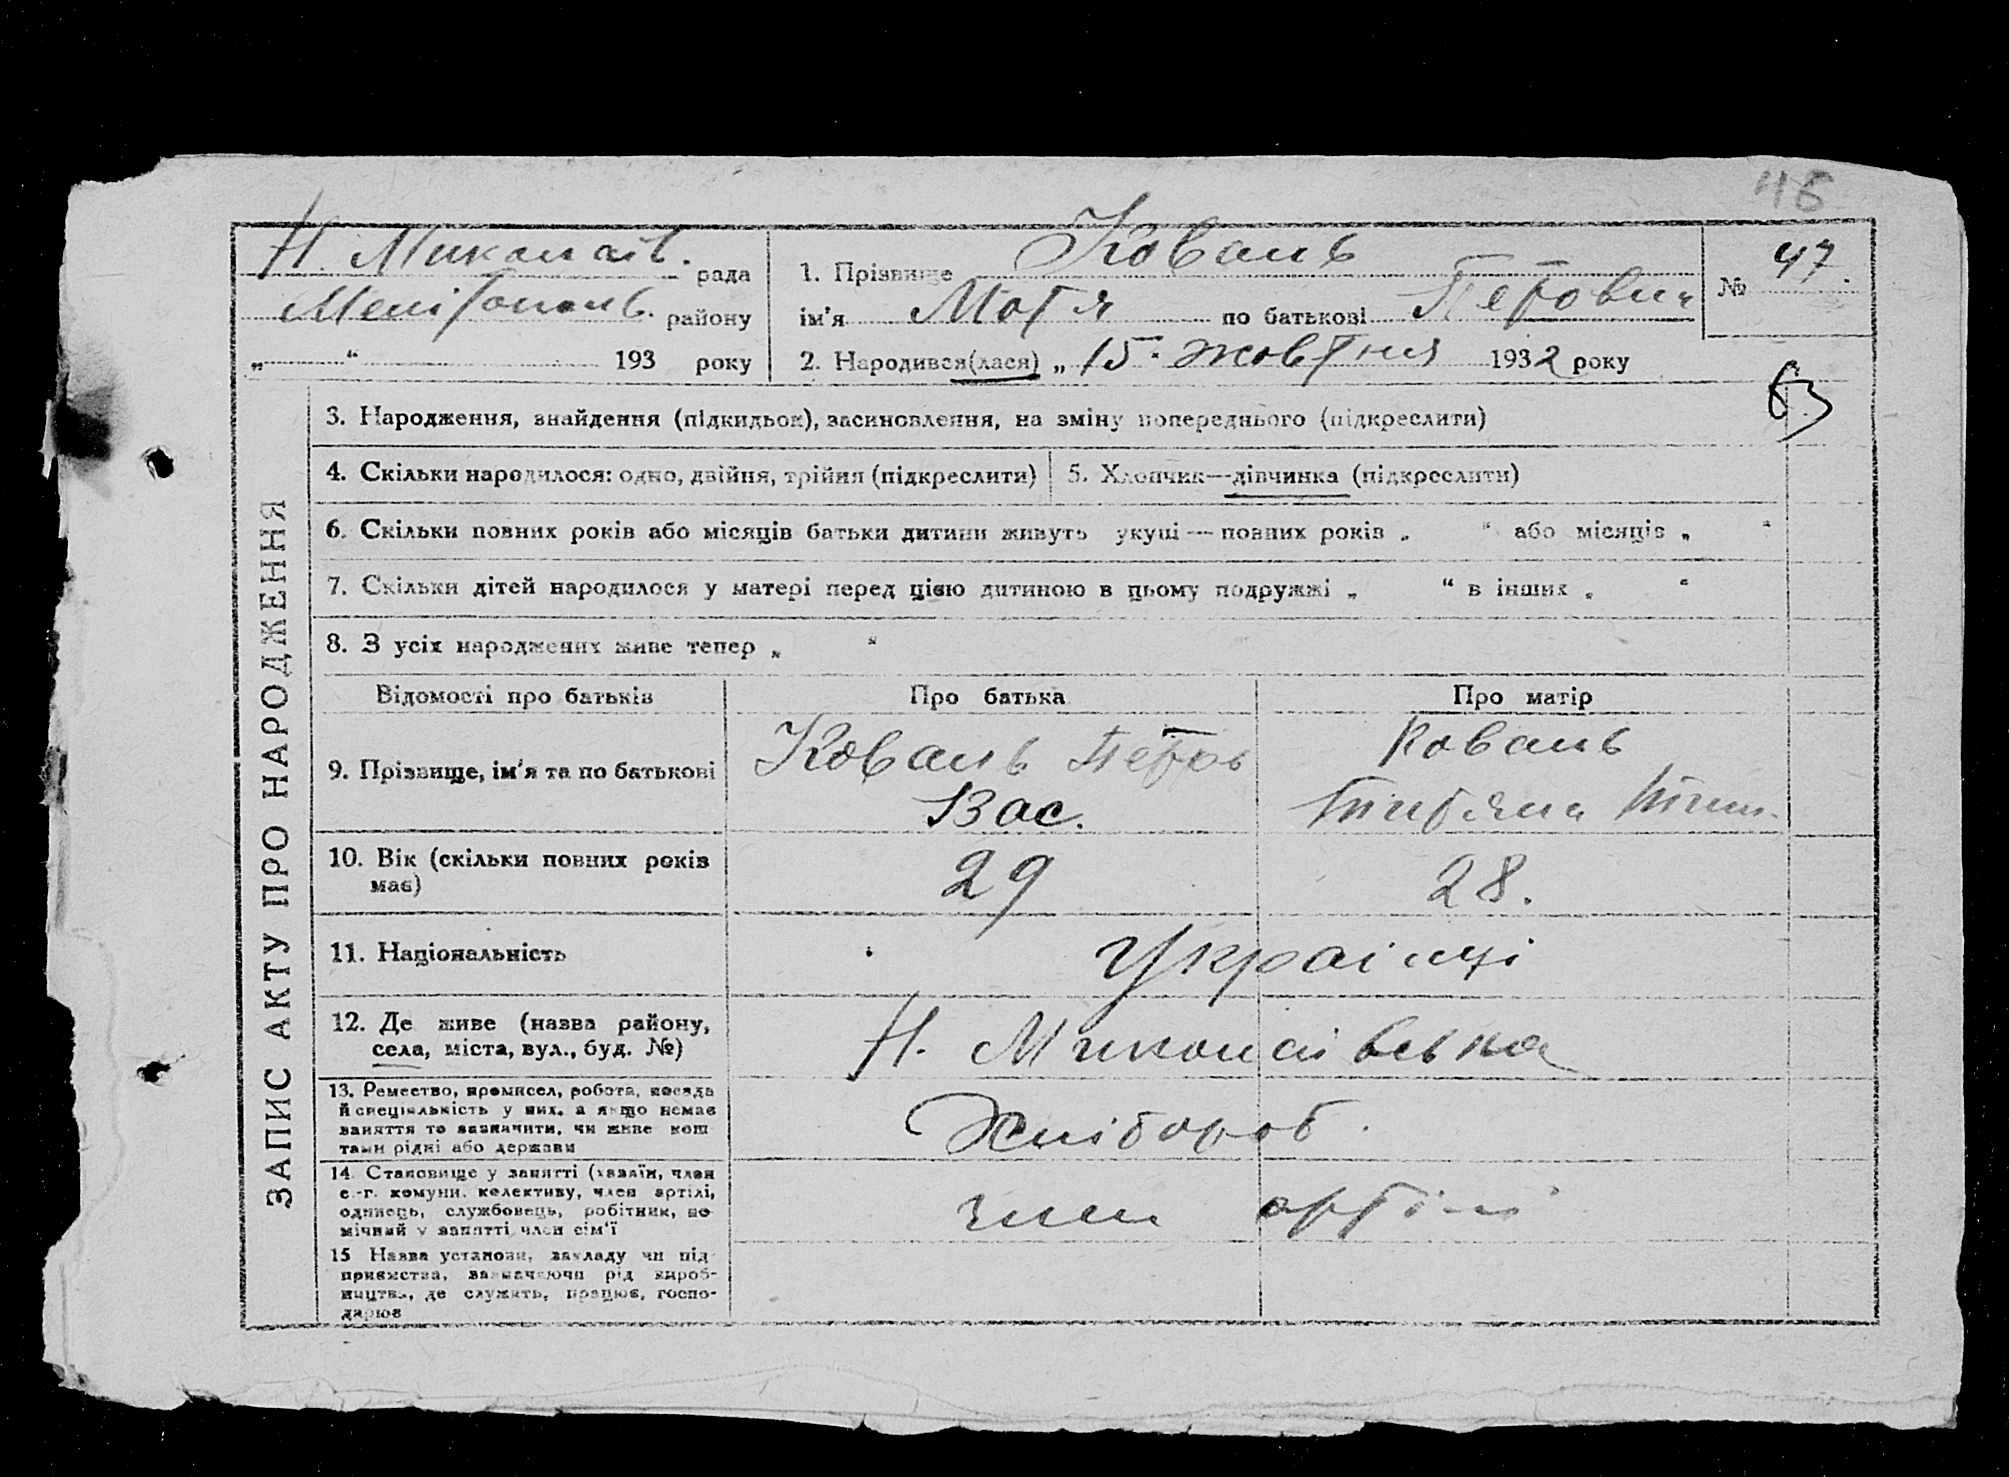 46
Н. Миколаїв. рада
Мелітополь. району
„ “ 193 року
1. Прізвище Коваль
ім'я Мотя по батькові Петровн
2. Народився(лася) „ 15. жовтня 1932 року
№ 47.
63
ЗАПИС АКТУ ПРО НАРОДЖЕННЯ
3. Народження, знайдення (підкидьок), засиновлення, на зміну попереднього (підкреслити)
4. Скільки народилося: одно, двійня, трійня (підкреслити)
5. Хлопчик—дівчинка (підкреслити)
6. Скільки повних років або місяців батьки дитини живуть укупі — повних років „ “ або місяців „ “
7. Скільки дітей народилося у матері перед цією дитиною в цьому подружжі „ “ в інших „ “
8. З усіх народжених живе тепер „ “
Відомості про батьків
Про батька
Про матір
9. Прізвище, ім'я та по батькові
Коваль Петро
Вас.
Коваль
Тит.
10. Вік (скільки повних років
має)
29
28.
11. Національність
Українці
12. Де живе (назва району,
села, міста, вул., буд. №)
Н. Миколаївська
13. Ремество, промисел, робота, посада
й спеціяльність у них, а якщо немає
заняття то зазначити, чи живе кош-
тами рідні або держави
Хлібороб.
14. Становище у занятті (хазяїн, член
с.-г. комуни, колективу, член артілі,
одинець, службовець, робітник, по-
мічний у занятті член сім'ї
член артілі
15 Назва установи, закладу чи під-
приємства, зазначаючи рід вироб-
ництва, де служить, працює, госпо-
дарює